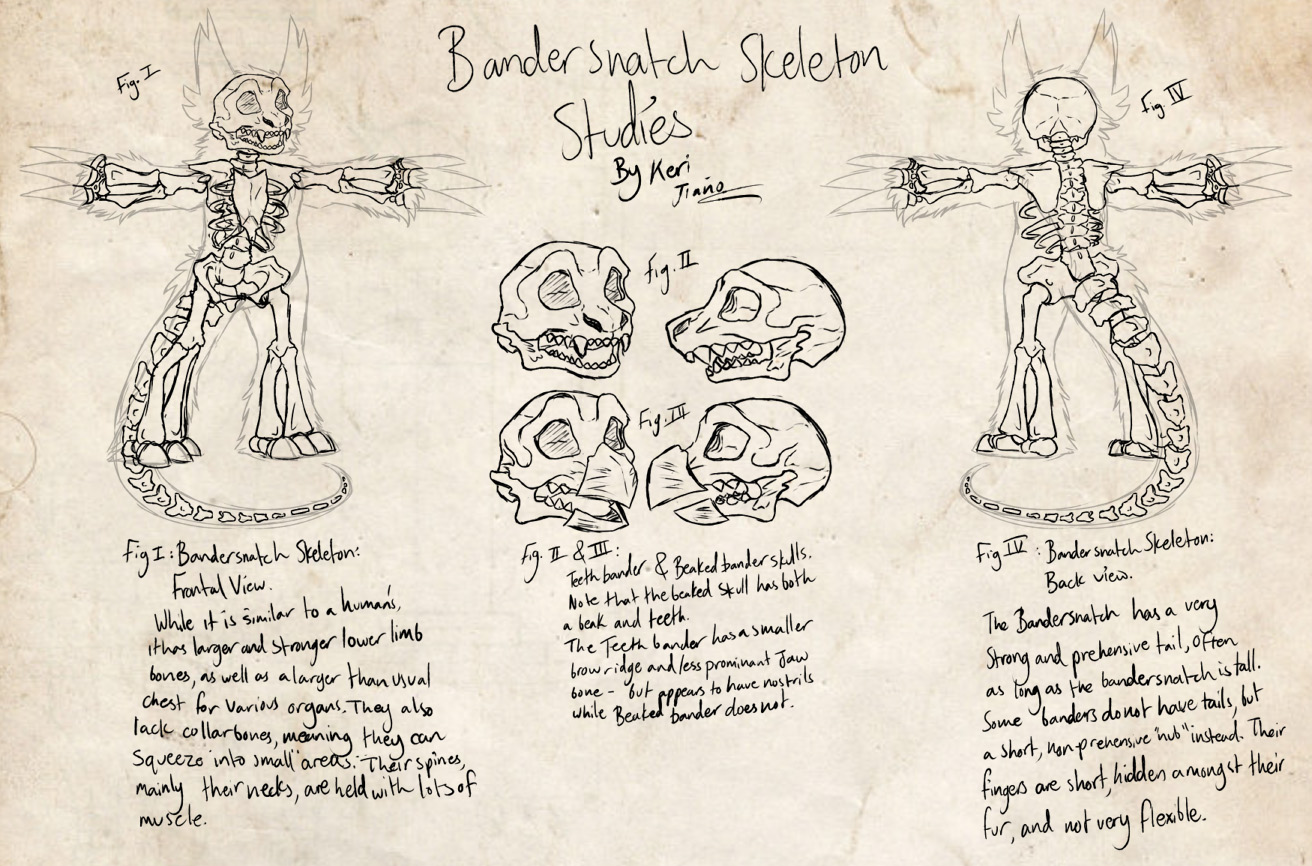 Bandersnatch Skeleton
Studies
By Keri
Jiaño
Fig. I
Fig. II
Fig. III
Fig IV
Fig I: Bandersnatch Skeleton:
Frontal View.
While it is similar to a humans,
it has larger and stronger lower limb
bones, as well as a larger than usual
chest for various organs. They also
lack collarbones, meaning they can
squeeze into small areas. Their spines,
mainly their necks, are held with lots of
muscle.
Fig. II & III:
Teeth bander & Beaked bander skulls.
Note that the beaked skull has both
a beak and teeth.
The Teeth bander has a smaller
brow ridge and less prominant Jaw
bone - but appears to have nostrils
while Beaked bander does not.
Fig IV: Bandersnatch Skeleton:
Back view.
The Bandersnatch has a very
Strong and prehensive tail, often
as long as the bandersnatch is tall.
Some banders do not have tails, but
a short, non-prehensive "nub" instead. Their
fingers are short, hidden amongst their
fur, and not very flexible.